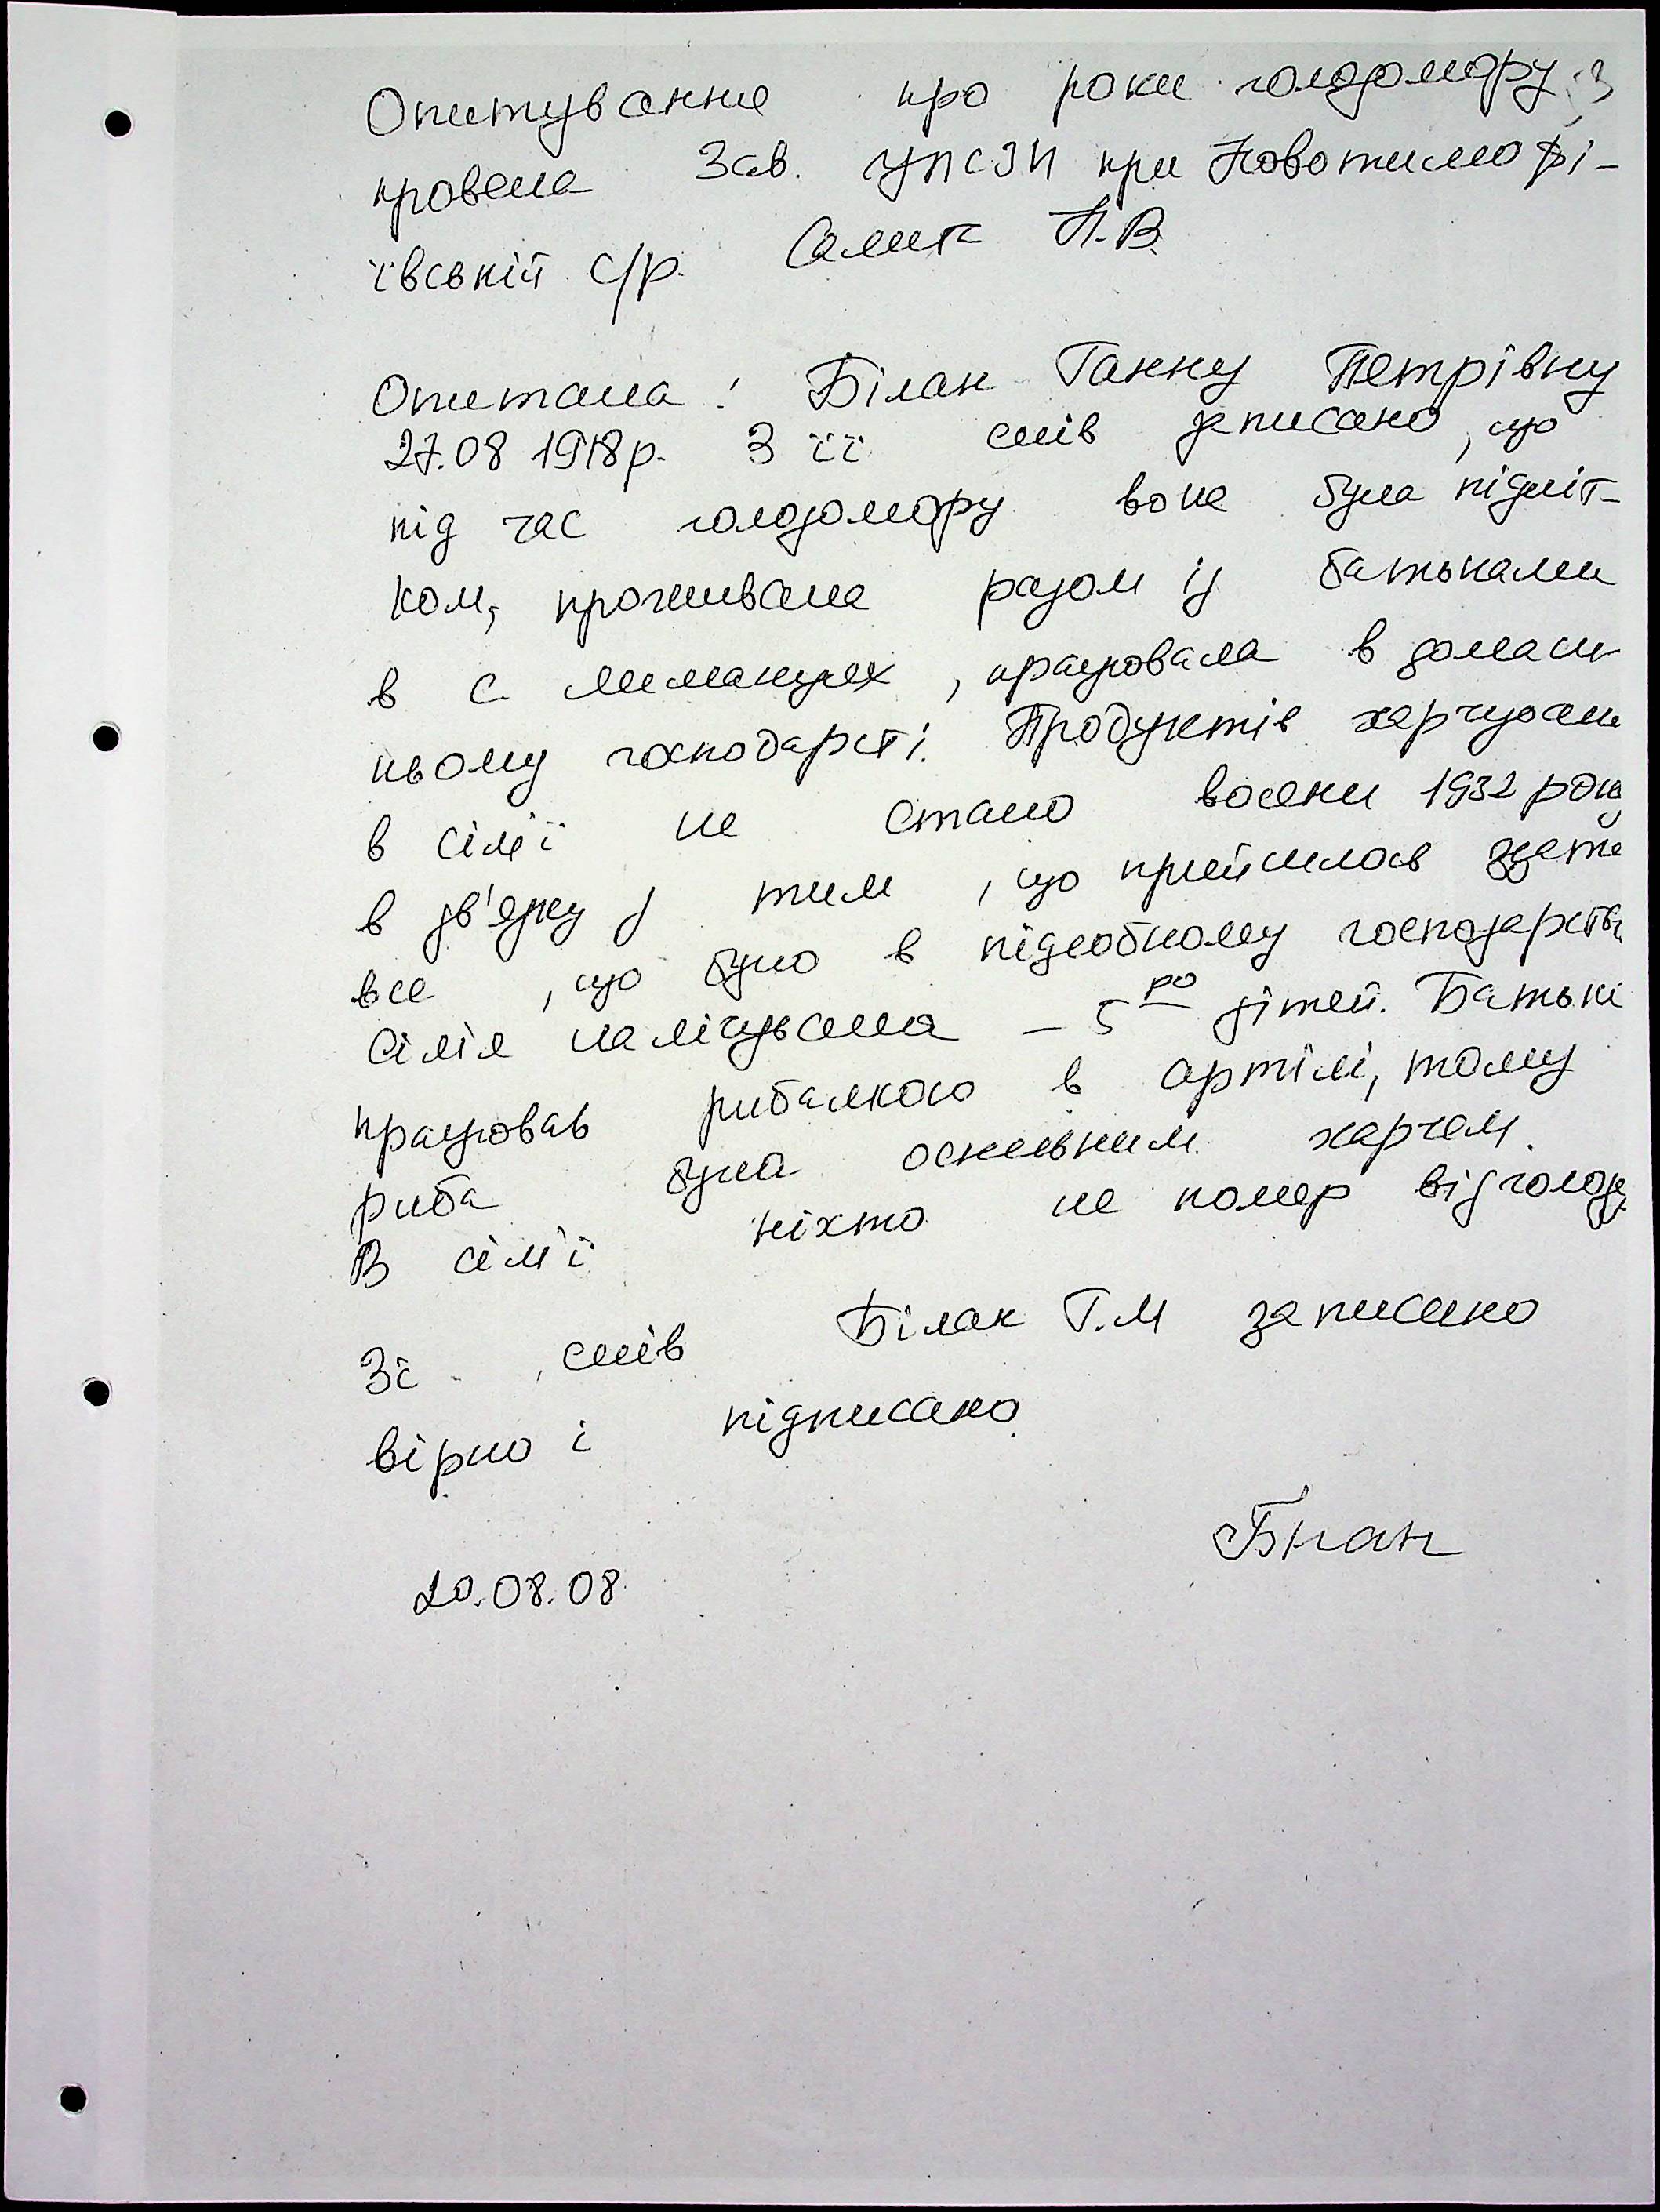 Опитування про роки голодомору
провела Зав. УПСЗН при Новотимофі-
ївській с/р. Салит Л.В.
Опитала: Білан Ганну Петрівну
27.08 1918р. З її слів записано, що
під час голодомору вона була підліт-
ком, проживала разом із батьками
в с. Лиманцях, працювала в домаш
ньому господарсті. Продуктів харчуван
в сім'ї не стало восени 1932 року
в зв'язку з тим, що прийшлось здати
все, що було в підсобному господарстві
Сім'я налічувала – 5ро дітей. Батько
працював рибалкою в артілі, тому
риба була основним харчем.
В сім'ї ніхто не помер від голоду.
Зі слів Білан Г.М записано
вірно і підписано.
Білан
20.08.08